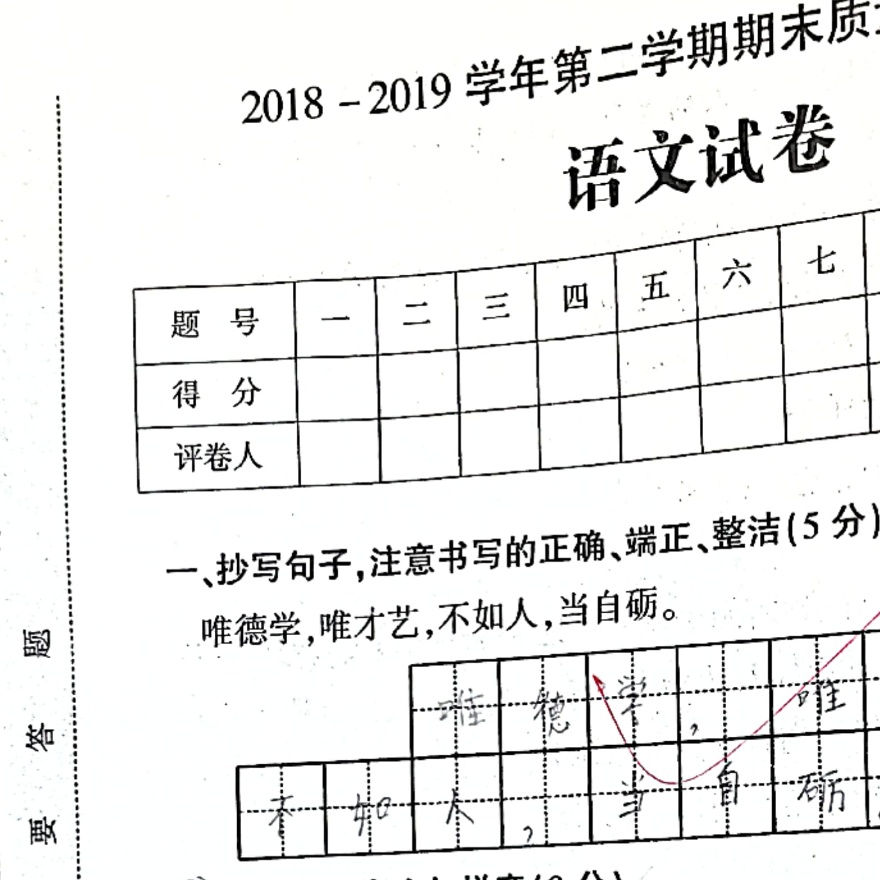 2018-2019学年第二学期期末质
语文试卷
题 号 一 二 三 四 五 六 七
得 分
评卷人
一、抄写句子,注意书写的正确、端正、整洁(5分)
唯德学,唯才艺,不如人,当自砺。
唯德学,唯
不如人,当自砺
题
答
要